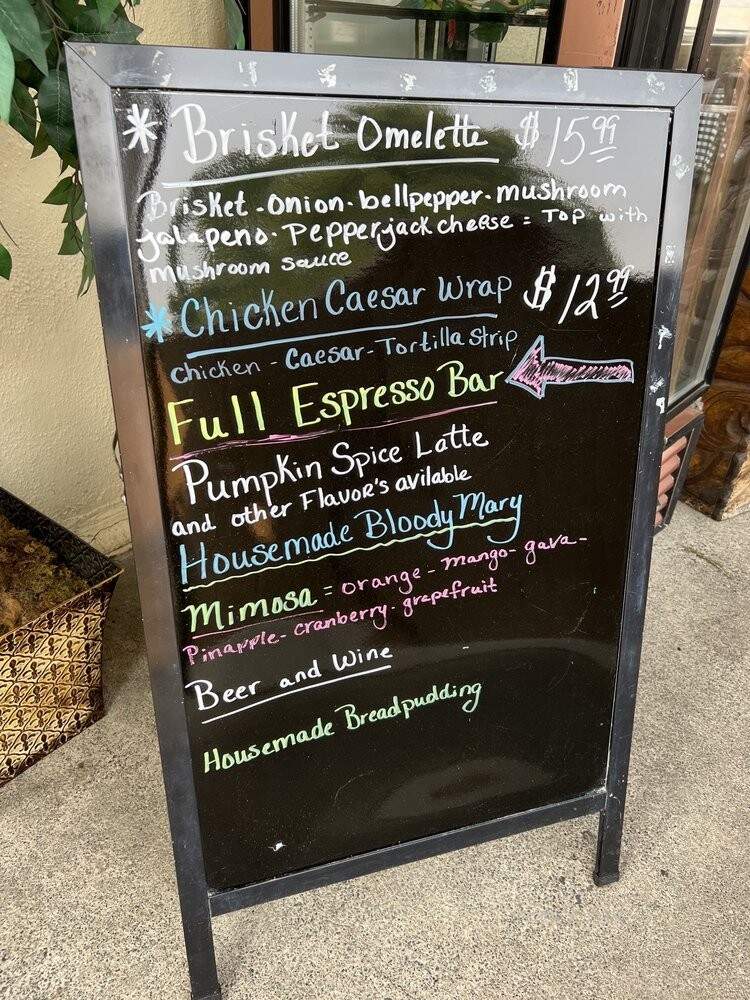 * Brisket Omelette $15.99
Brisket - onion - bellpepper - mushroom
jalapeno - Pepperjack cheese = Top with
mushroom sauce
* Chicken Caesar Wrap $12.99
chicken - Caesar - Tortilla Strip
Full Espresso Bar
Pumpkin Spice Latte
and other Flavor's avilable
Housemade Bloody Mary
Mimosa = orange - mango - gava -
Pinapple - cranberry - grapefruit
Beer and Wine
Housemade Breadpudding